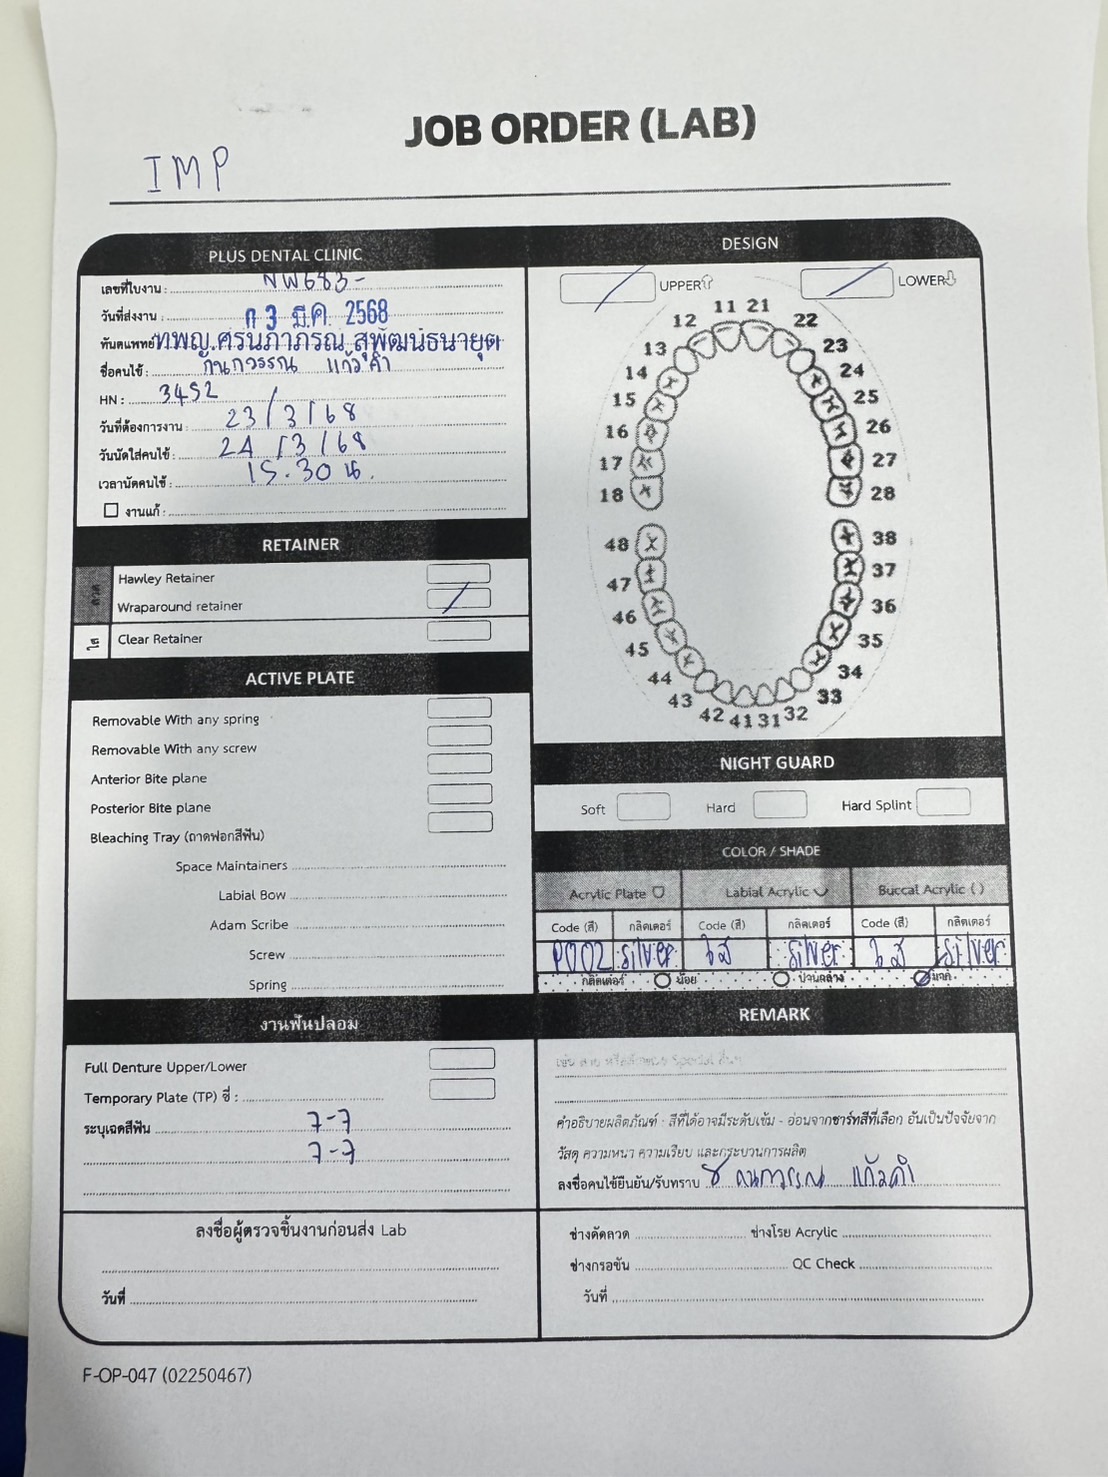 JOB ORDER (LAB)
IMP
PLUS DENTAL CLINIC
เลขที่ใบงาน : NW683-
วันที่ส่งงาน : 3 มี.ค. 2568
ทันตแพทย์ ทพญ.ศรันภาภรณ สุพัฒน์ธนายุต
ชื่อคนไข้ : กนกวรรณ แก้วคำ
HN : 3452
วันที่ต้องการงาน : 23/3/68
วันนัดใส่คนไข้ : 24/3/68
เวลานัดคนไข้ : 15.30 น.
งานแก้ :
RETAINER
ลวด
Hawley Retainer
Wraparound retainer
ใส
Clear Retainer
ACTIVE PLATE
Removable With any spring
Removable With any screw
Anterior Bite plane
Posterior Bite plane
Bleaching Tray (ถาดฟอกสีฟัน)
Space Maintainers
Labial Bow
Adam Scribe
Screw
Spring
งานฟันปลอม
Full Denture Upper/Lower
Temporary Plate (TP) ซี่ :
ระบุเฉดสีฟัน 7-7
7-7
ลงชื่อผู้ตรวจชิ้นงานก่อนส่ง Lab
วันที่
DESIGN
UPPER
LOWER
11 21
12 22
13 23
14 24
15 25
16 26
17 27
18 28
48 38
47 37
46 36
45 35
44 34
43 33
42 41 31 32
NIGHT GUARD
Soft
Hard
Hard Splint
COLOR / SHADE
Acrylic Plate
Labial Acrylic
Buccal Acrylic ( )
Code (สี) กลิตเตอร์ Code (สี) กลิตเตอร์ Code (สี) กลิตเตอร์
P002 silver ใส silver ใส silver
กลิตเตอร์ น้อย ปานกลาง มาก
REMARK
คำอธิบายผลิตภัณฑ์ : สีที่ได้อาจมีระดับเข้ม - อ่อนจากชาร์ทสีที่เลือก อันเป็นปัจจัยจาก
วัสดุ ความหนา ความเรียบ และกระบวนการผลิต
ลงชื่อคนไข้ยืนยัน/รับทราบ กนกวรรณ แก้วคำ
ช่างดัดลวด ช่างโรย Acrylic
ช่างกรอขัน QC Check
วันที่
F-OP-047 (02250467)